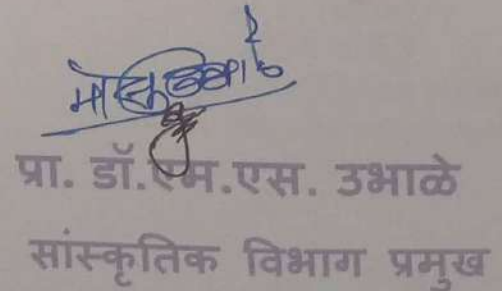 प्रा. डॉ.एम.एस. उभाळे
सांस्कृतिक विभाग प्रमुख